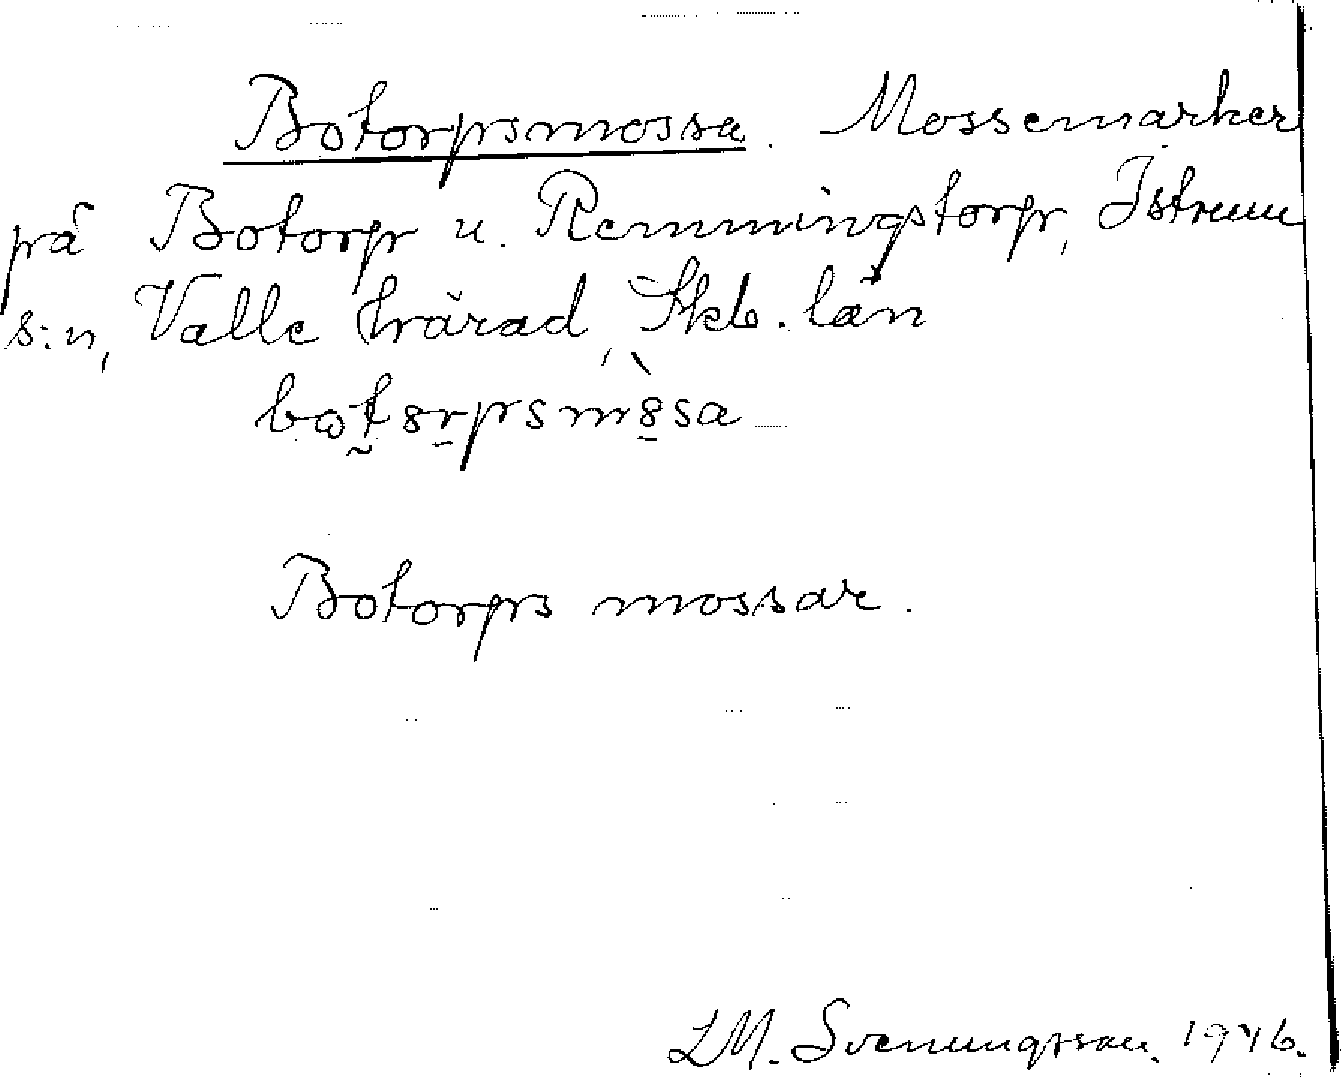 Botorpsmossa. Mossemarker
på Botorp u. Remmingstorp, Istrum
s:n, Valle härad, Skb. län
Botorps mossar.
LM. Svenungsson. 1946.